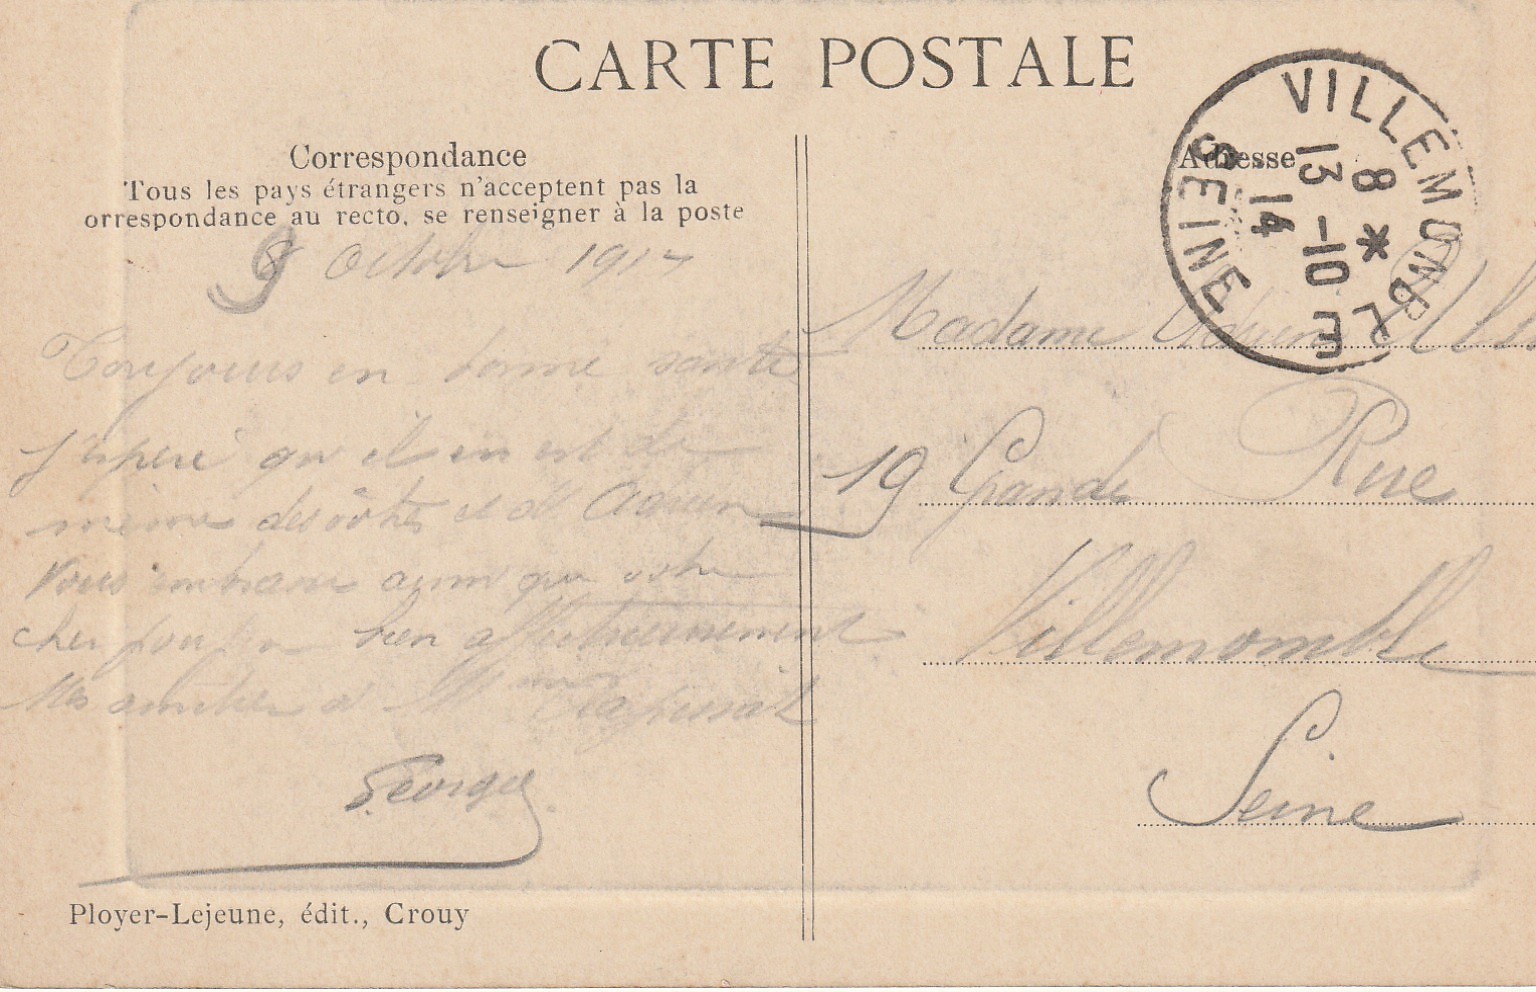 CARTE POSTALE
Correspondance
Tous les pays étrangers n'acceptent pas la
orrespondance au recto, se renseigner à la poste
9 Octobre 191
Toujours en bonne santé
J'espère qu il en est de
même des vôtres et d' Adrien
Vous embrasse ainsi que votre
cher poupon bien affectueusement
Mes amitiés à Mme
Georges
Ployer-Lejeune, édit., Crouy
Adresse
VILLEMOMBLE
8 *
13 -10 E
14
SEINE
Madame Adrien
19 Grande Rue
Villemomble
Seine